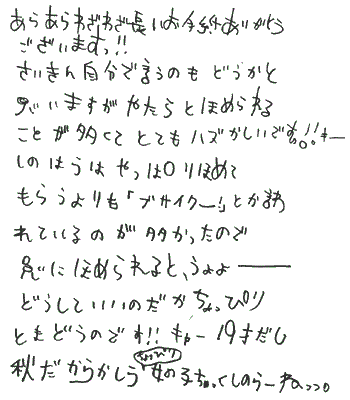 あらあらわざわざ長いお手紙ありがとう
ございますっ!!
さいきん自分で言うのもどうかと
思いますがやたらとほめられる
ことが多くてとてもハズかしいです!!。。キー
しのはうはやっぱりほめて
もらうよりも「ブサイクー!」とか言われ
れているのが多かったので
急にほめられると、うょょ――
どうしていいのだかちょっぴり
ともどうのです!!キャー19才だし
秋だからかしら
女の子ちっくしのらーねっっ。